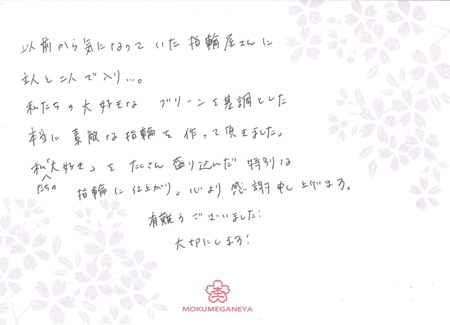 以前から気になっていた指輪屋さんに
主人と二人で入り…。
私たちの大好きな グリーンを基調とした
本当に 素敵な指輪を 作って頂きました。
私たちの"大好き"をたくさん盛り込んだ 特別な
指輪に仕上がり。心より 感謝申し上げます。
有難うございました!
大切にします!
MOKUMEGANEYA